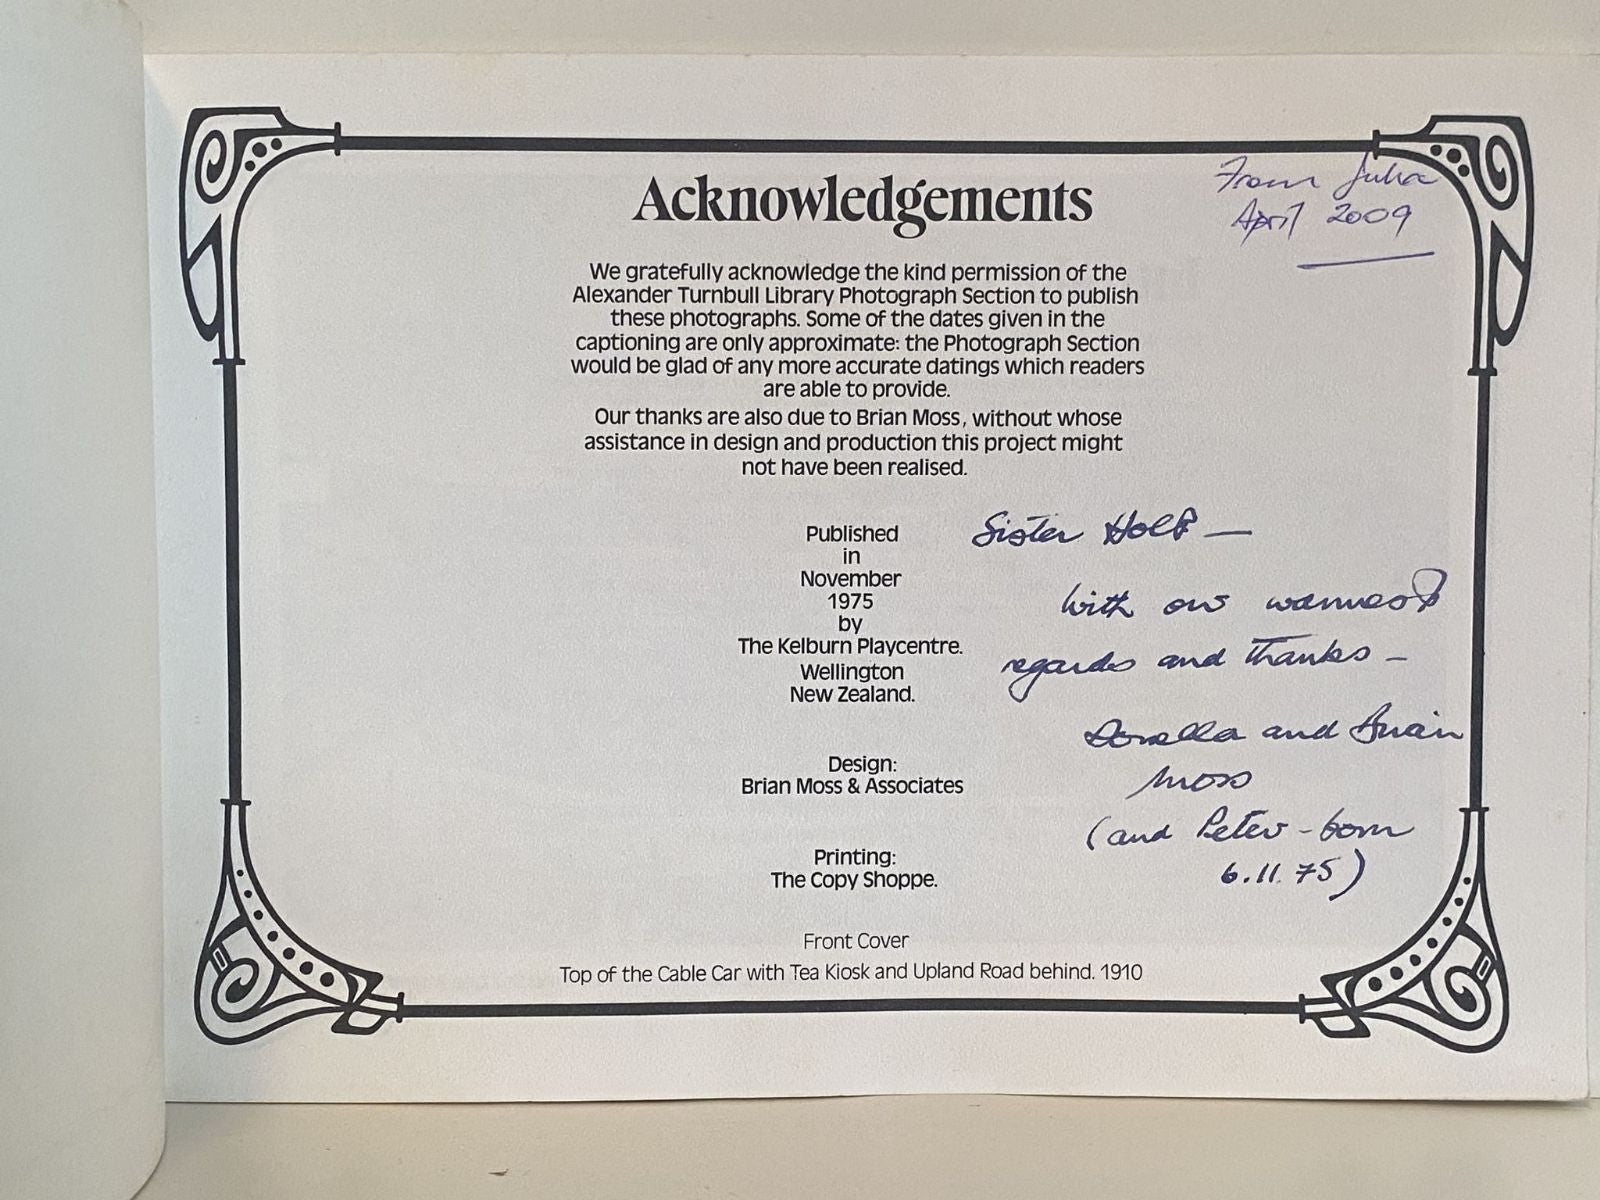 Acknowledgements
From Julia
April 2009
We gratefully acknowledge the kind permission of the
Alexander Turnbull Library Photograph Section to publish
these photographs. Some of the dates given in the
captioning are only approximate: the Photograph Section
would be glad of any more accurate datings which readers
are able to provide.
Our thanks are also due to Brian Moss, without whose
assistance in design and production this project might
not have been realised.
Published
in
November
1975
by
The Kelburn Playcentre.
Wellington
New Zealand.
Design:
Brian Moss & Associates
Printing:
The Copy Shoppe.
Front Cover
Top of the Cable Car with Tea Kiosk and Upland Road behind. 1910
Sister Holt —
With our warmest
regards and thanks –
Donella and Brian
Moss
(and Peter – born
6.11.75)